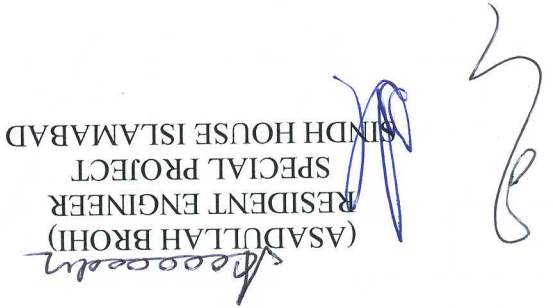 (ASADULLAH BROHI)
RESIDENT ENGINEER
SPECIAL PROJECT
SINDH HOUSE ISLAMABAD